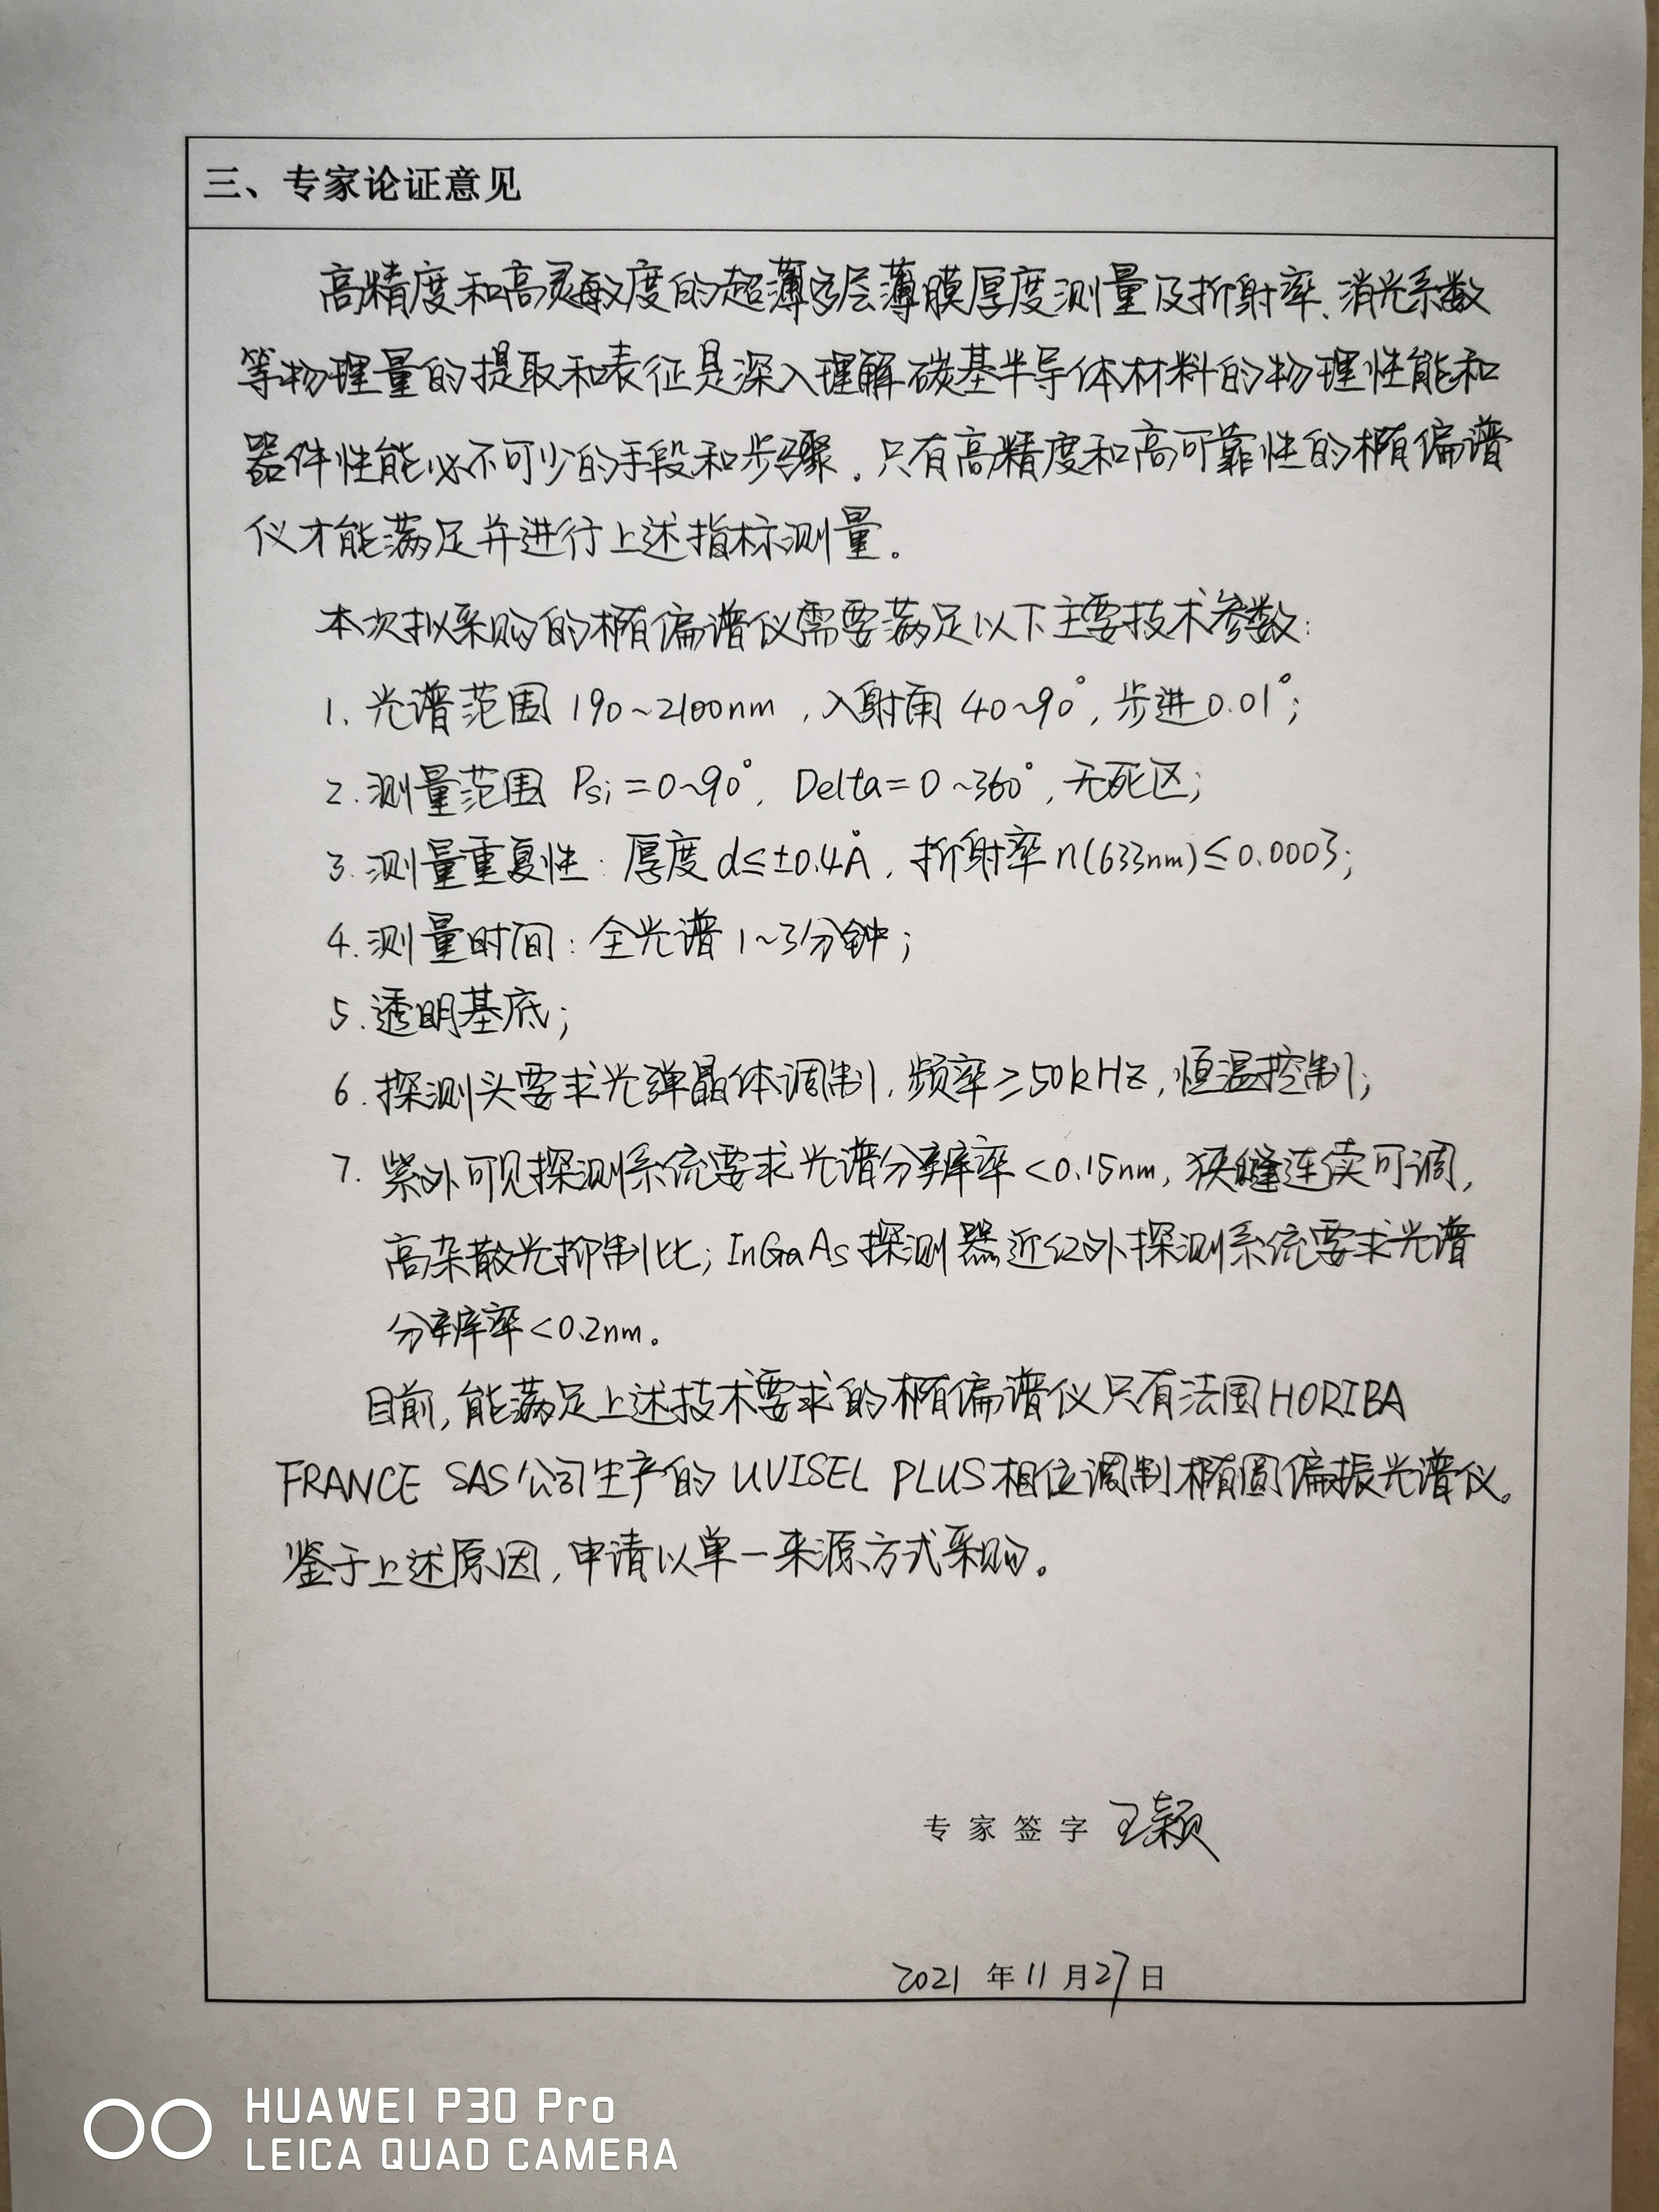 三、专家论证意见
高精度和高灵敏度的超薄多层薄膜厚度测量及折射率、消光系数
等物理量的提取和表征是深入理解碳基半导体材料的物理性能和
器件性能必不可少的手段和步骤。只有高精度和高可靠性的椭偏谱
仪才能满足并进行上述指标测量。
本次拟采购的椭偏谱仪需要满足以下主要技术参数:
1. 光谱范围 190~2100nm,入射角 40~90°,步进0.01°;
2. 测量范围 Psi=0~90°, Delta=0~360°,无死区;
3. 测量重复性: 厚度 d≤±0.4Å, 折射率 n(633nm)≤0.0003;
4. 测量时间: 全光谱 1~3分钟;
5. 透明基底;
6. 探测头要求光弹晶体调制, 频率≥50kHz, 恒温控制;
7. 紫外可见探测系统要求光谱分辨率<0.15nm, 狭缝连续可调,
高杂散光抑制比; InGaAs探测器近红外探测系统要求光谱
分辨率<0.2nm。
目前,能满足上述技术要求的椭偏谱仪只有法国HORIBA
FRANCE SAS公司生产的 UVISEL PLUS相位调制椭圆偏振光谱仪。
鉴于上述原因,申请以单一来源方式采购。
专家签字 王颖
2021 年 11 月 27 日
HUAWEI P30 Pro
LEICA QUAD CAMERA